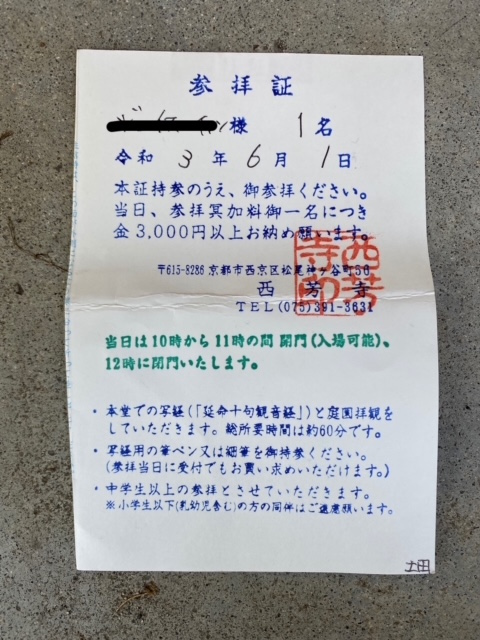 参拝証
様 1名
令和 3 年 6 月 1 日
本証持参のうえ、御参拝ください。
当日、参拝冥加料御一名につき
金3,000円以上お納め願います。
〒615-8286 京都市西京区松尾神ヶ谷町56
西芳寺
TEL(075)391-3631
西芳寺印
当日は10時から11時の間 開門(入場可能)、
12時に閉門いたします。
・本堂での写経(「延命十句観音経」)と庭園拝観を
していただきます。総所要時間は約60分です。
・写経用の筆ペン又は細筆を御持参ください。
(参拝当日に受付でもお買い求めいただけます。)
・中学生以上の参拝とさせていただきます。
※小学生以下(乳幼児含む)の方の同伴はご遠慮願います。